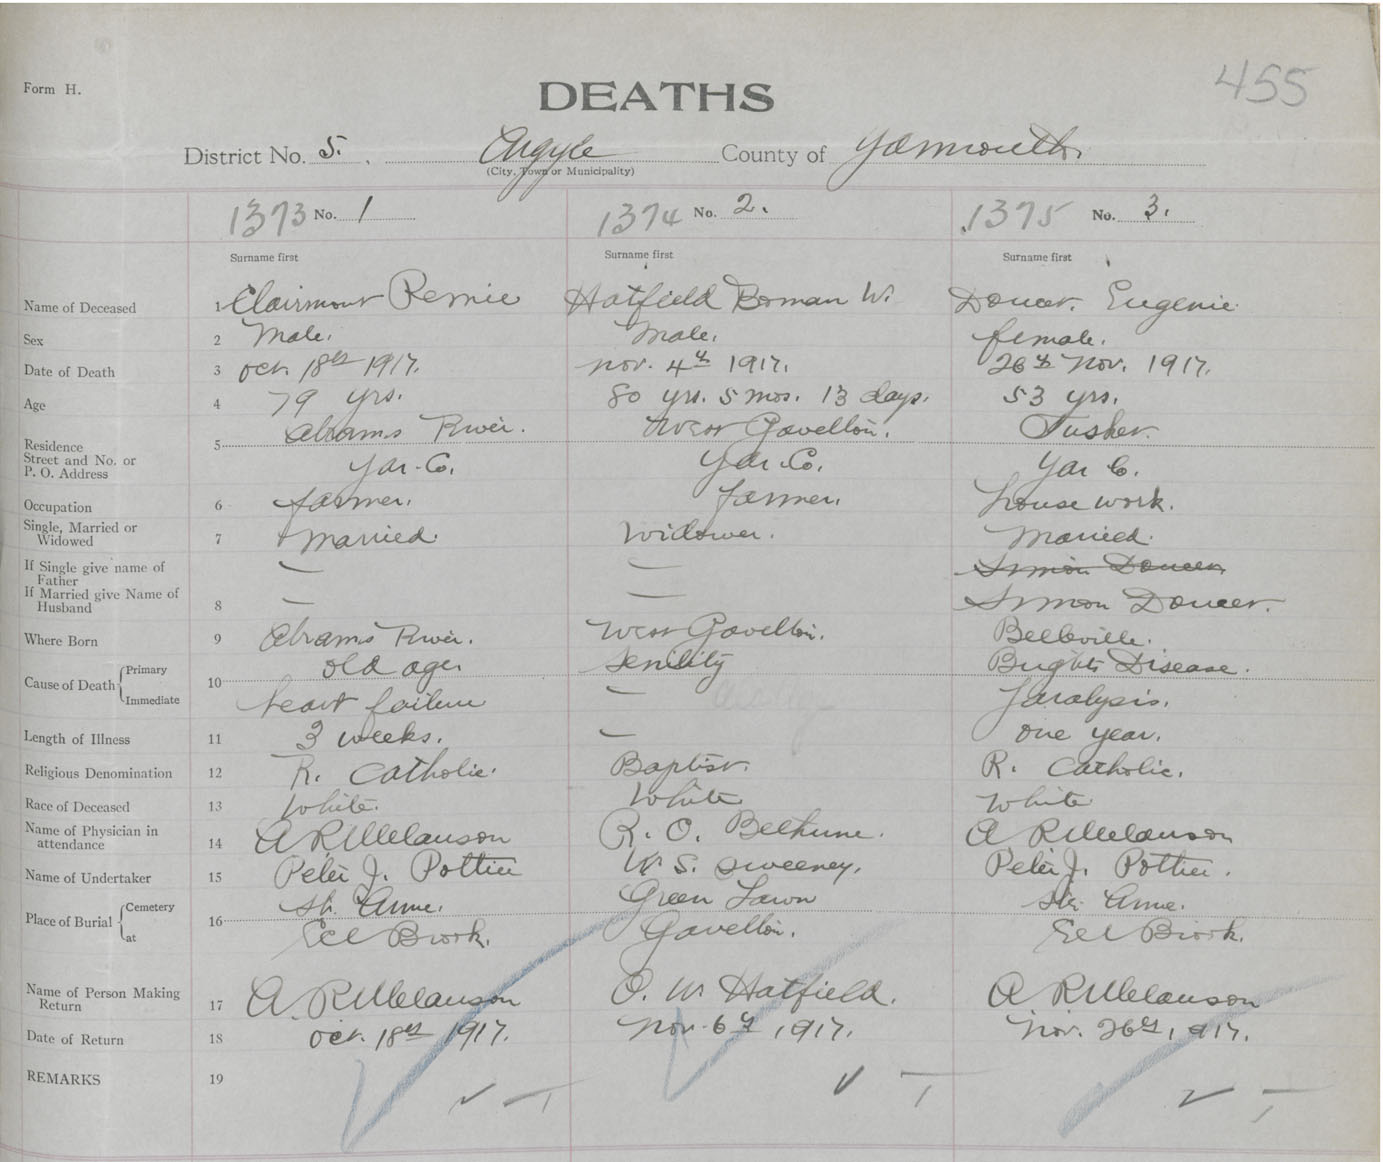 Form H.
DEATHS
455
District No. 5. Argyle County of Yarmouth
(City, Town or Municipality)
1373 No. 1 1374 No. 2. 1375 No. 3.
Surname first Surname first Surname first
Name of Deceased 1 Clairmont Remie Hatfield Boman W. Doucet. Eugenie
Sex 2 Male. Male. female.
Date of Death 3 oct. 18th 1917. nov. 4th 1917. 26th Nov. 1917.
Age 4 79 yrs. 80 yrs. 5 mos. 13 days. 53 yrs.
Residence
Street and No. or
P. O. Address
5 Abrams River. West Gavelton. Tusket.
Yar. Co. Yar. Co. Yar Co.
Occupation 6 farmer. farmer. house work.
Single, Married or
Widowed
7 Married Widower. Married.
If Single give name of
Father
— — Simon Doucet
If Married give Name of
Husband
8 — — Simon Doucet.
Where Born 9 Abrams River. West Gavelton. Belleville.
Cause of Death Primary 10 old age. Senility Brights Disease.
Immediate heart failure — Paralysis.
Length of Illness 11 3 weeks. — one year.
Religious Denomination 12 R. Catholic. Baptist. R. Catholic.
Race of Deceased 13 White. White White
Name of Physician in
attendance
14 A R Melanson R. O. Bethune. A R Melanson
Name of Undertaker 15 Peter J. Pottier W. S. Sweeney. Peter J. Pottier.
Place of Burial Cemetery 16 St. Anne. Green Lawn Ste. Anne.
at Eel Brook. Gavelton. Eel Brook.
Name of Person Making
Return
17 A. R Melanson O. W. Hatfield. A R Melanson
Date of Return 18 oct. 18th 1917. Nov. 6th, 1917. Nov. 26th, 1917.
REMARKS 19